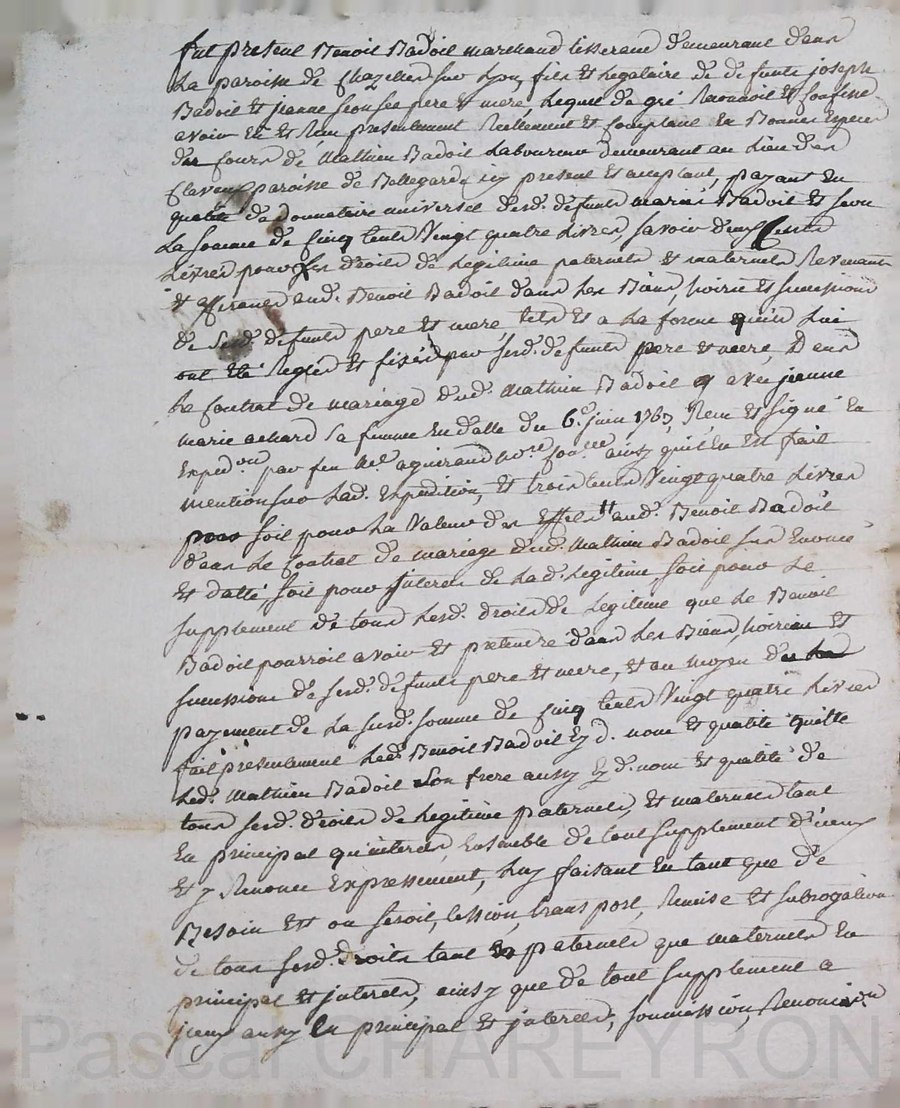 fut present Benoit Badoil marchand tisserand demeurant dans
La paroisse de Chazelles sur Lyon, fils et Legataire de defunts joseph
Badoil et jeanne pere et mere, Lequel de gré Reconnoit et Confesse
avoir Eu et Reçu presentement Reellement et Comptant En Bonnes Especes
de Cours de Mathieu Badoil Laboureur demeurant au Lieu des
paroisse de Bellegarde icy present et acceptant, payant en
qualité de donnataire universel desd. defunts mariés Badoil et
La somme de Cinq Cents Vingt quatre Livres, savoir deux Cents
Livres pour ses droits de Legitime paternels et maternels Revenants
et afferants aud. Benoit Badoil dans Les Biens, hoirie et successions
de sesd. defunts pere et mere, tels et a La forme qu'ils Lui
ont été Reglés et fixés par sesd. defunts pere et mere, Dans
Le Contrat de mariage dud. Mathieu Badoil avec jeanne
marie achard sa femme En datte du 6e. juin 1767, Reçu et signé En
Exped.on par feu Me. aguirand no.re ainsy qu'il En est fait
mention sur Lad. Expedition, et trois Cents Vingt quatre Livres
pour soit pour La Valeur des Effets aud. Benoit Badoil
dans Le Contrat de mariage dud. Mathieu Badoil sus Enoncé
Et datté, soit pour interets de Lad. Legitime, soit pour Le
supplement de tous Lesd. droits de Legitime que Le Benoit
Badoil pourroit avoir et pretendre dans Les Biens, hoiries et
successions de sesd. defunts pere et mere, et au moyen du
payement de La susd. somme de Cinq Cents Vingt quatre Livres
fait presentement Led. Benoit Badoil Ez d. nom et qualité quitte
Led. Mathieu Badoil son frere aussy Ez d. nom et qualité de
tous sesd. droits de Legitime paternels, et maternels tant
En principal qu'interets, Ensemble de tout supplement d'iceux
Et y Renonce Expressement, Luy faisant En tant que de
Besoin Est ou seroit, Cession, transport, Remise et subrogation
de tous sesd. droits tant paternels que maternels En
principal et interets, ainsy que de tout supplement a
iceux aussy En principal et interets, soumission, Renonciaon
Pascal CHAREYRON